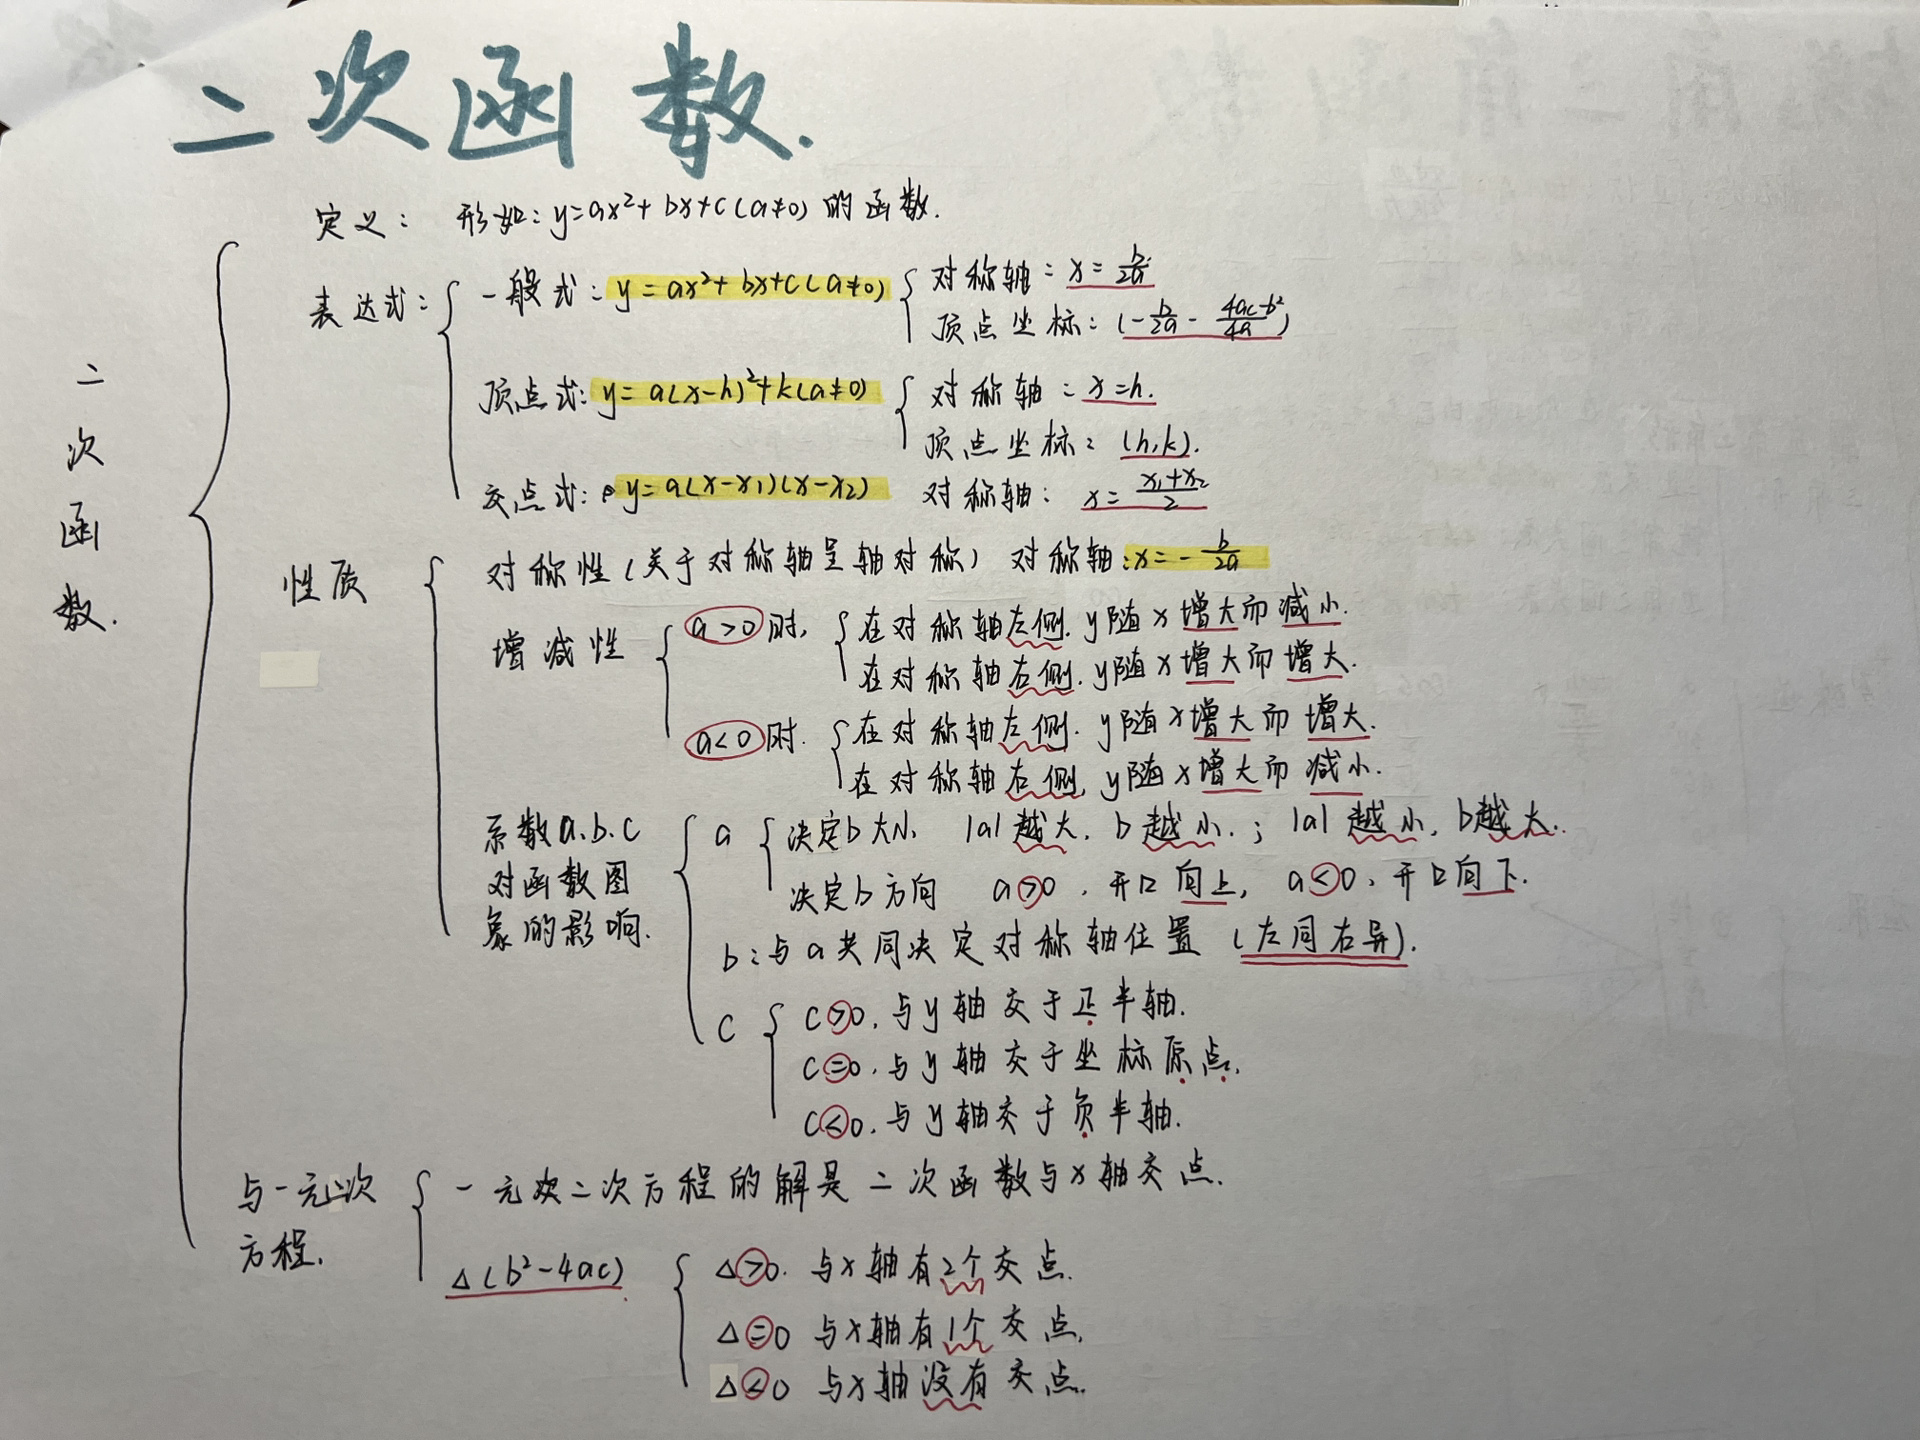 二次函数.
二次函数.
定义： 形如：y=ax²+bx+c(a≠0) 的函数.
表达式：
一般式：y=ax²+bx+c(a≠0)
对称轴：x=b/2a
顶点坐标：(-b/2a - 4ac-b²/4a)
顶点式：y=a(x-h)²+k(a≠0)
对称轴：x=h.
顶点坐标：(h,k).
交点式：y=a(x-x₁)(x-x₂) 对称轴：x=x₁+x₂/2
性质
对称性(关于对称轴呈轴对称) 对称轴:x=-b/2a
增减性
a>0时,
在对称轴左侧.y随x增大而减小.
在对称轴右侧.y随x增大而增大.
a<0时.
在对称轴左侧.y随x增大而增大.
在对称轴右侧,y随x增大而减小.
系数a.b.c
对函数图
象的影响.
a
决定b大小 |a|越大.b越小.；|a|越小,b越大.
决定b方向 a>0.开口向上, a<0.开口向下.
b：与a共同决定对称轴位置 (左同右异).
c
c>0.与y轴交于正半轴.
c=0.与y轴交于坐标原点.
c<0.与y轴交于负半轴.
与一元二次
方程.
一元次二次方程的解是二次函数与x轴交点.
△(b²-4ac)
△>0. 与x轴有2个交点.
△=0 与x轴有1个交点.
△<0 与x轴没有交点.